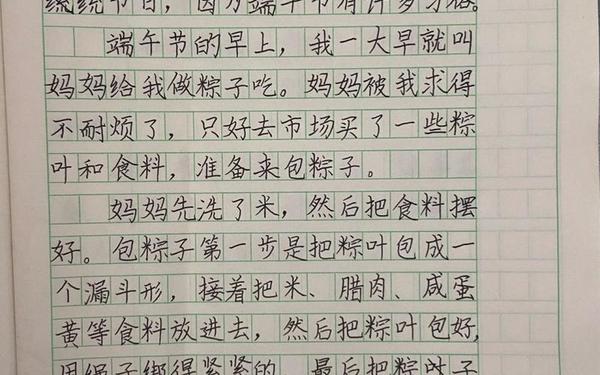 统节日，因为端午节有许多习俗。
端午节的早上，我一大早就叫
妈妈给我做粽子吃。妈妈被我求得
不耐烦了，只好去市场买了一些粽
叶和食料，准备来包粽子。
妈妈先洗了米，然后把食料摆
好。包粽子第一步是把粽叶包成一
个漏斗形，接着把米、腊肉、咸蛋
黄等食料放进去，然后把粽叶包好，
用绳子绑得紧紧的，最后把粽叶子